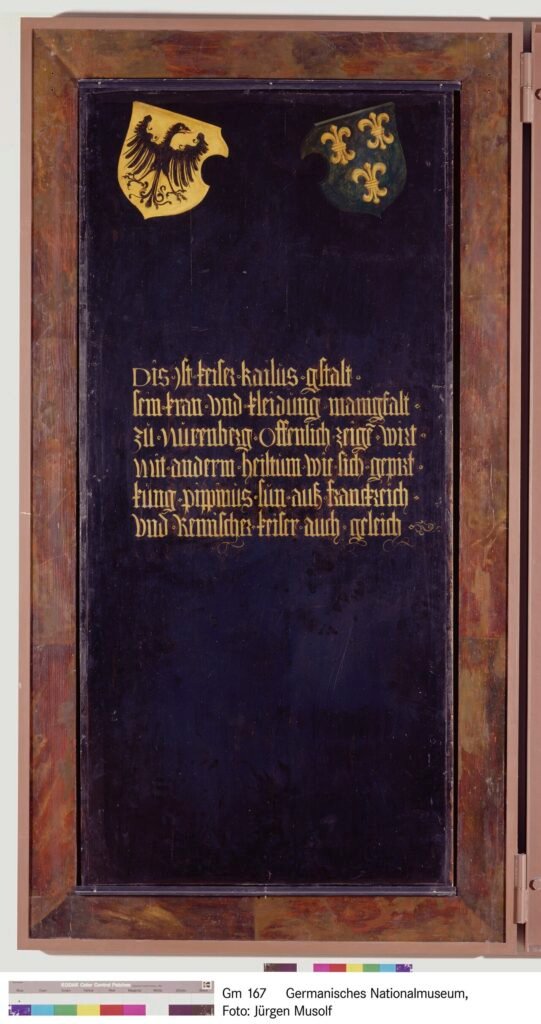 Dis · ist · keiser · karlus · gstalt ·
sein · kran · vnd · kleidung · manigfalt ·
zu · Nurenberg · Offenlich zeige͂ · wirt ·
Mit · anderm · heiltum · wie · sich · gepirt ·
kung · pippinus · sun · auß · franckreich ·
Vnd · Remischer · keiser · auch · geleich ·
KODAK Color Control Patches
Gm 167 Germanisches Nationalmuseum,
Foto: Jürgen Musolf